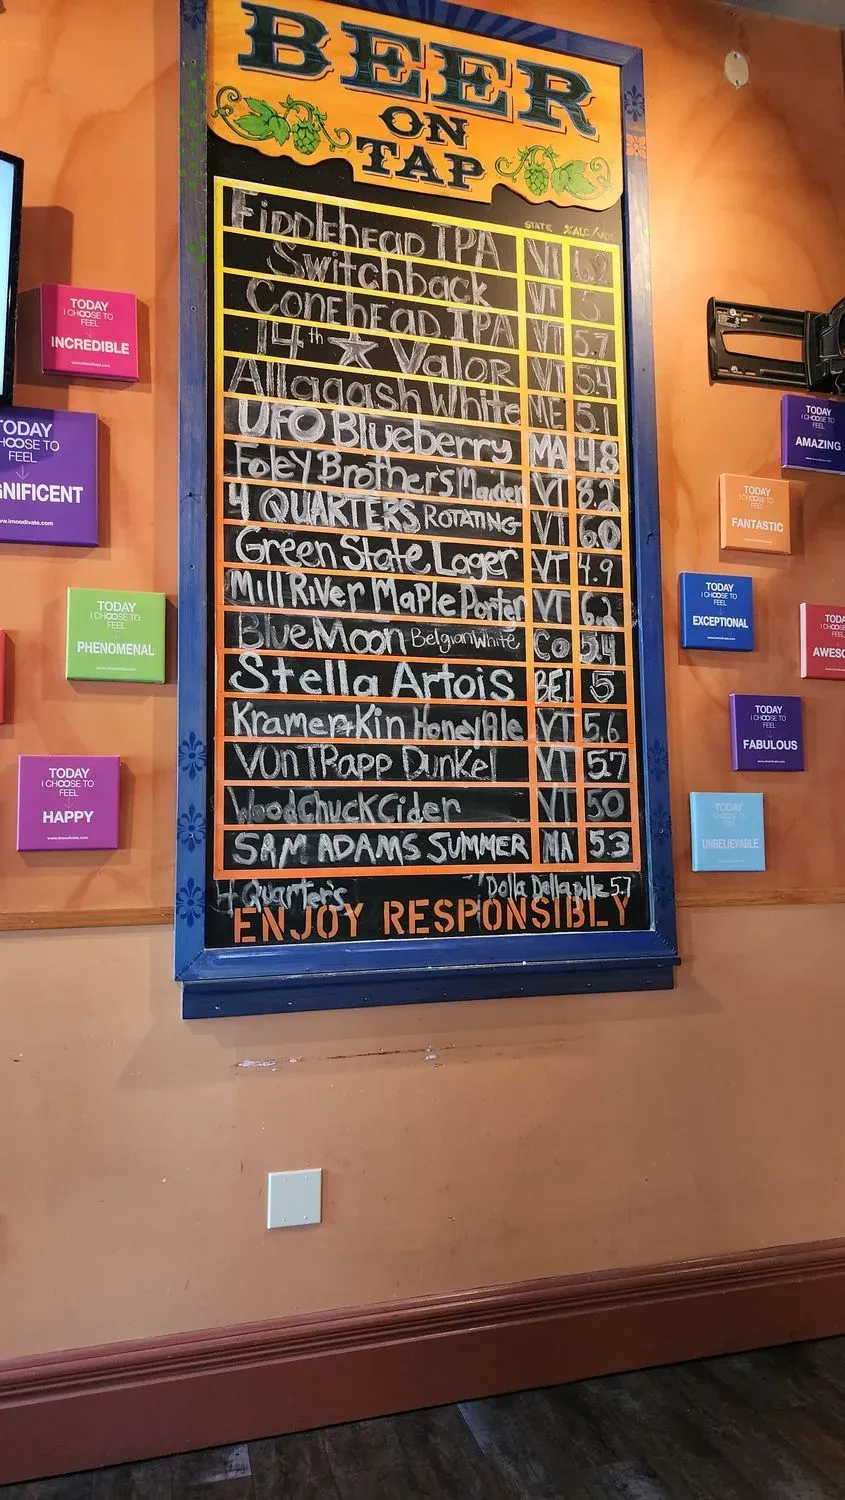 BEER
ON
TAP
STATE %ALC/VOL
Fiddlehead IPA VT 6.2
Switchback VT 5
Conehead IPA VT 5.7
14th ★ Valor VT 5.4
Allagash White ME 5.1
UFO Blueberry MA 4.8
Foley Brother's Maiden VT 8.2
4 QUARTERS ROTATING VT 6.0
Green State Lager VT 4.9
Mill River Maple Porter VT 6.2
Blue Moon Belgian White Co 5.4
Stella Artois BEL 5
Kramer + Kin Honey Ale VT 5.6
Von Trapp Dunkel VT 5.7
WoodChuck Cider VT 5.0
SAM ADAMS SUMMER MA 5.3
4 Quarter's Dolla Dolla 5.7
ENJOY RESPONSIBLY
TODAY
I CHOOSE TO
FEEL
INCREDIBLE
www.imoodivate.com
TODAY
CHOOSE TO
FEEL
GNIFICENT
www.imoodivate.com
TODAY
I CHOOSE TO
FEEL
PHENOMENAL
TODAY
I CHOOSE TO
FEEL
HAPPY
www.imoodivate.com
TODAY
I CHOOSE TO
FEEL
AMAZING
TODAY
I CHOOSE TO
FEEL
FANTASTIC
TODAY
I CHOOSE TO
FEEL
EXCEPTIONAL
TODAY
I CHOOSE TO
FEEL
AWESO
TODAY
I CHOOSE TO
FEEL
FABULOUS
TODAY
I CHOOSE TO
FEEL
UNBELIEVABLE